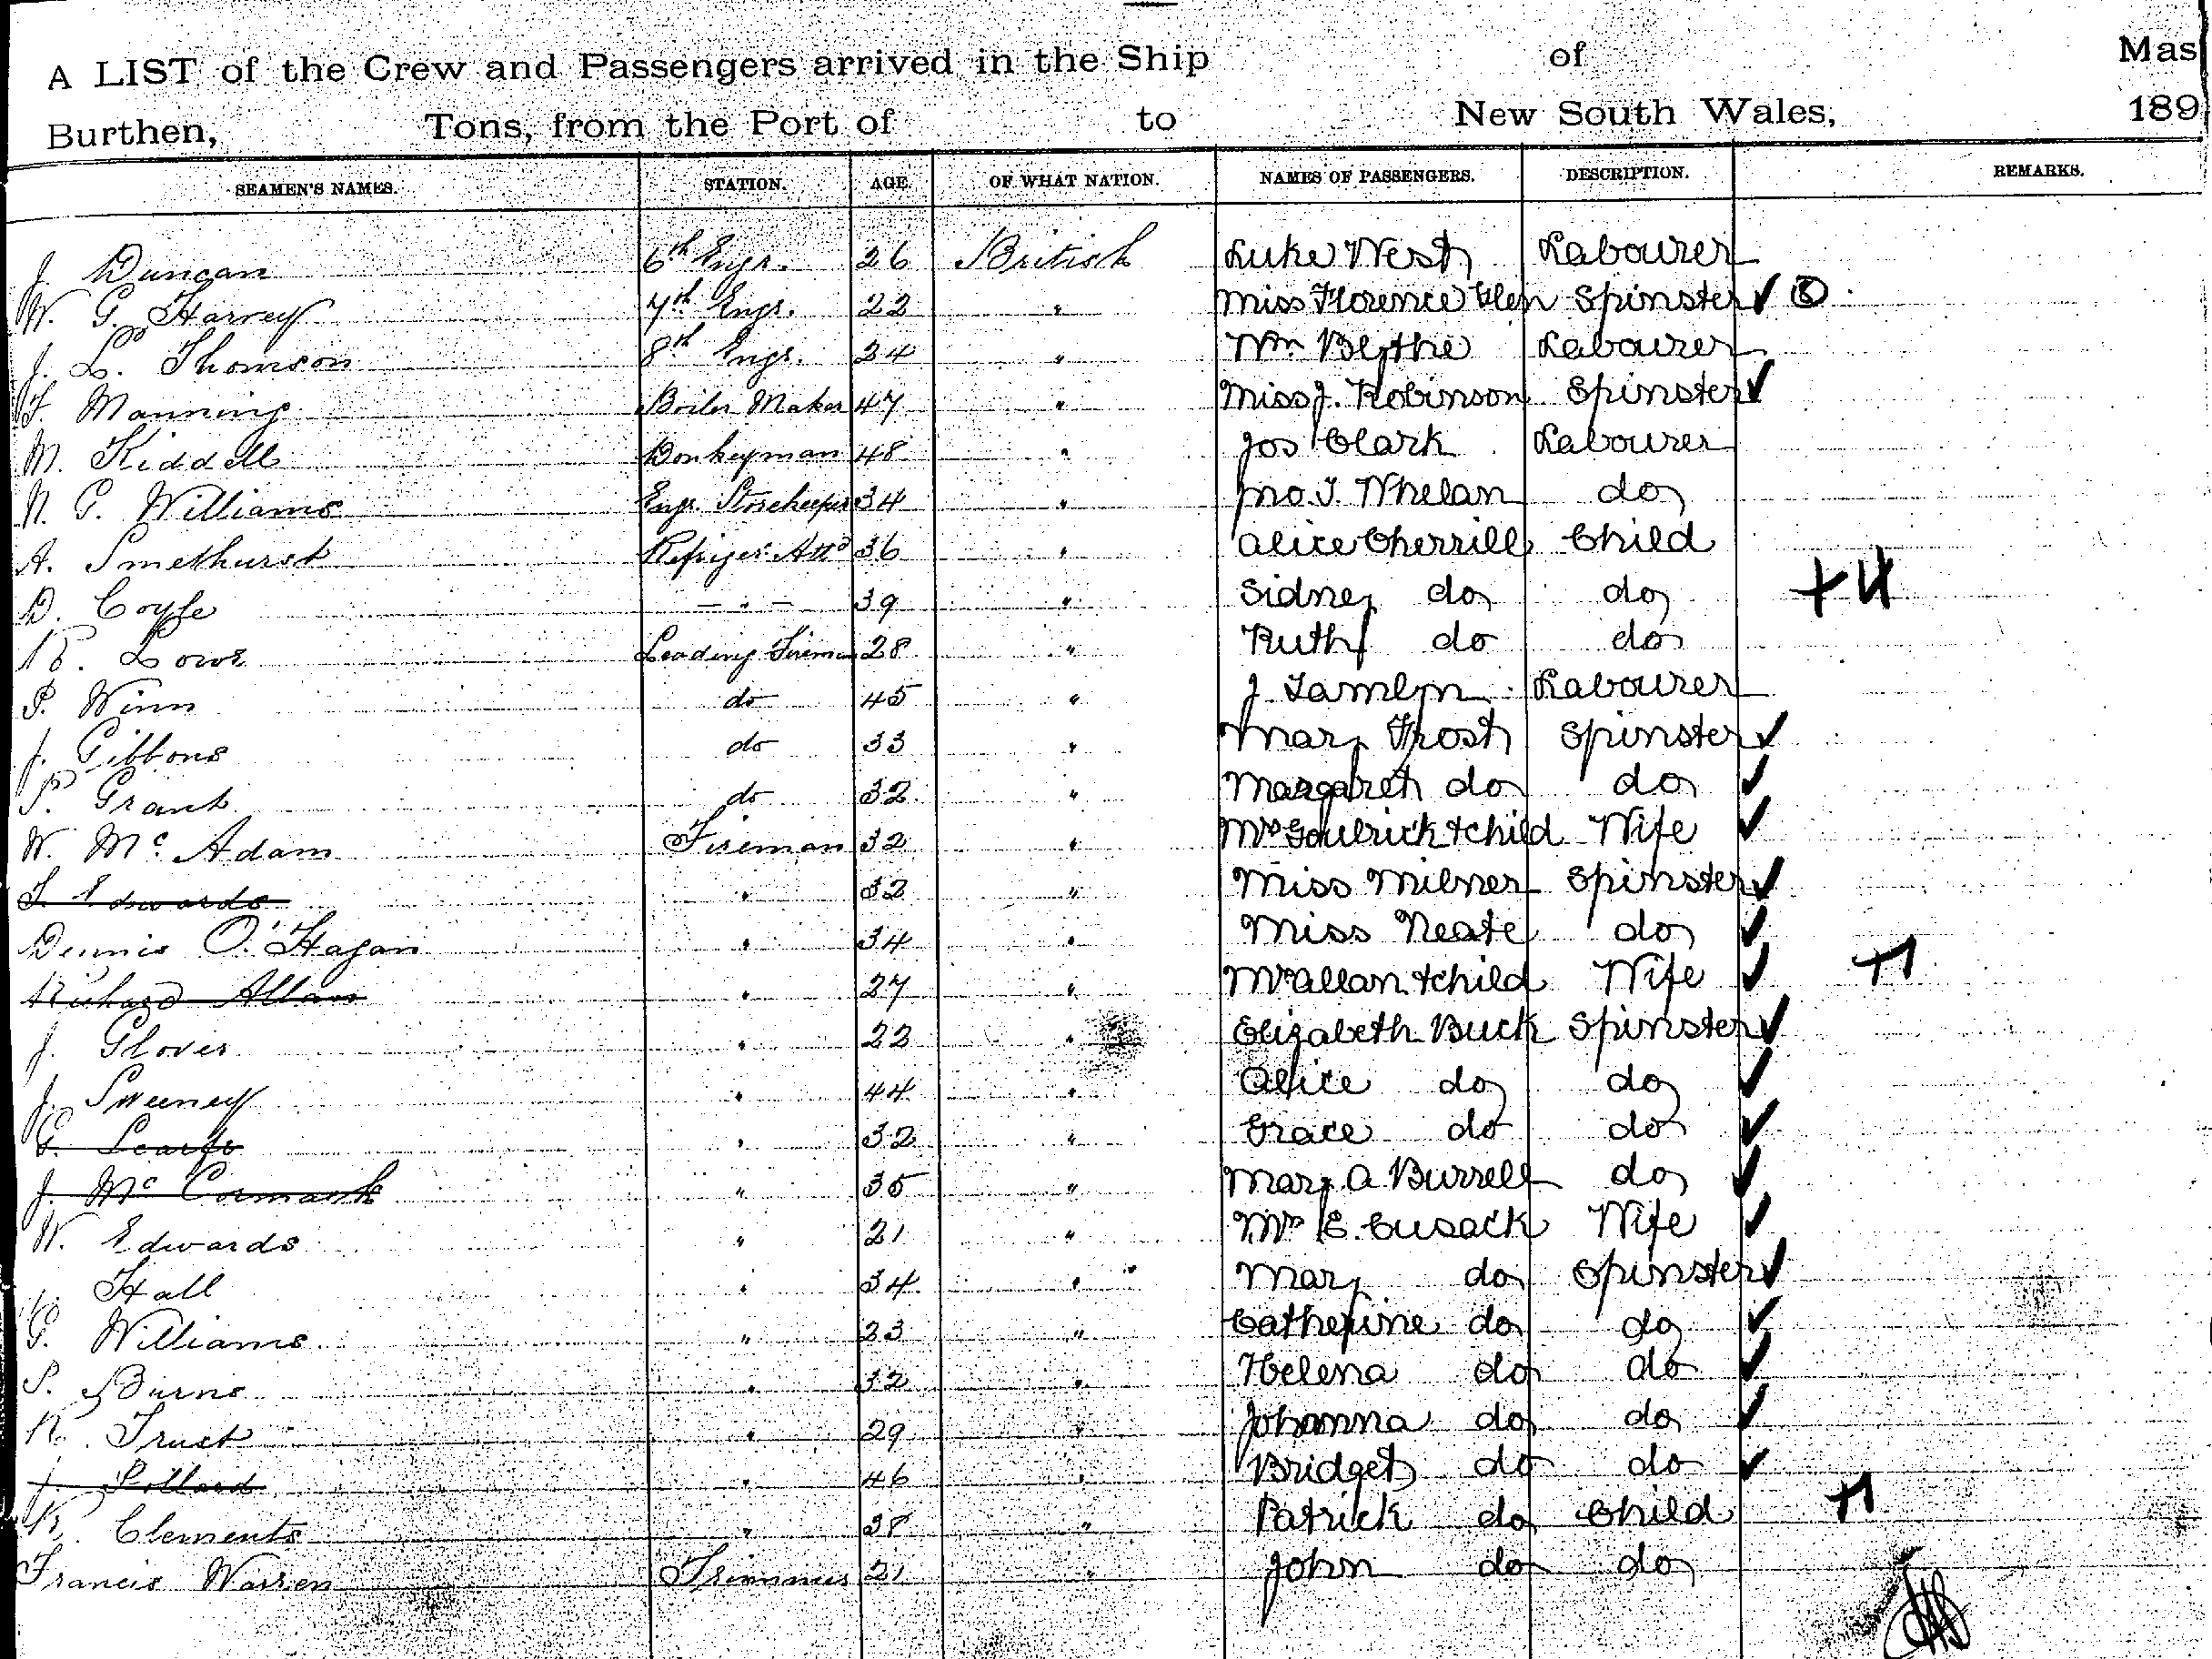 A LIST of the Crew and Passengers arrived in the Ship of Mas
Burthen, Tons, from the Port of to New South Wales, 189
SEAMEN'S NAMES. STATION. AGE. OF WHAT NATION. NAMES OF PASSENGERS. DESCRIPTION. REMARKS.
J. Duncan 6th Engr. 26 British Luke West Labourer
W. G. Harvey 7th Engr. 22 " Miss Florence Glen Spinster ✓
J. L. Thomson 8th Engr. 24 " Wm Blythe Labourer
F. Manning Boiler Maker 47 " Miss J. Robinson Spinster ✓
M. Kiddell Donkeyman 48 " Jos Clark Labourer
N. G. Williams Engr. Storekeeper 34 " Jno. T. Whelan do
A. Smethurst Refriger. Attd 36 " Alice Cherrill Child
D. Coyle - " - 39 " Sidney do do + 4
Lowe Leading Fireman 28 " Ruth do do
P. Winn do 45 " J. Tamlyn Labourer
J. Gibbons do 33 " Mary Frost Spinster ✓
P. Grant do 32 " Margaret do do ✓
W. Mc Adam Fireman 32 " Mrs Goulrick + child Wife ✓
T. Edwards " 32 " Miss Milner Spinster ✓
Dennis O'Hagan " 34 " Miss Neate do ✓
Richard Allan " 27 " Mrs Allan + child Wife ✓ +1
J. Glover " 22 " Elizabeth Buck Spinster ✓
J. Sweeney " 44 " Alice do do ✓
G. Scarfe " 32 " Grace do do ✓
J. Mc Cormack " 35 " Mary A Burrell do ✓
W. Edwards " 21 " Mrs E. Cusack Wife ✓
Hall " 34 " Mary do Spinster ✓
G. Williams " 23 " Catherine do do ✓
P. Burns " 32 " Helena do do ✓
Trust " 29 " Johanna do do ✓
J. Pollard " 46 " Bridget do do ✓
Clements " 38 " Patrick do Child +1
Francis Warren Trimmer 21 " John do do